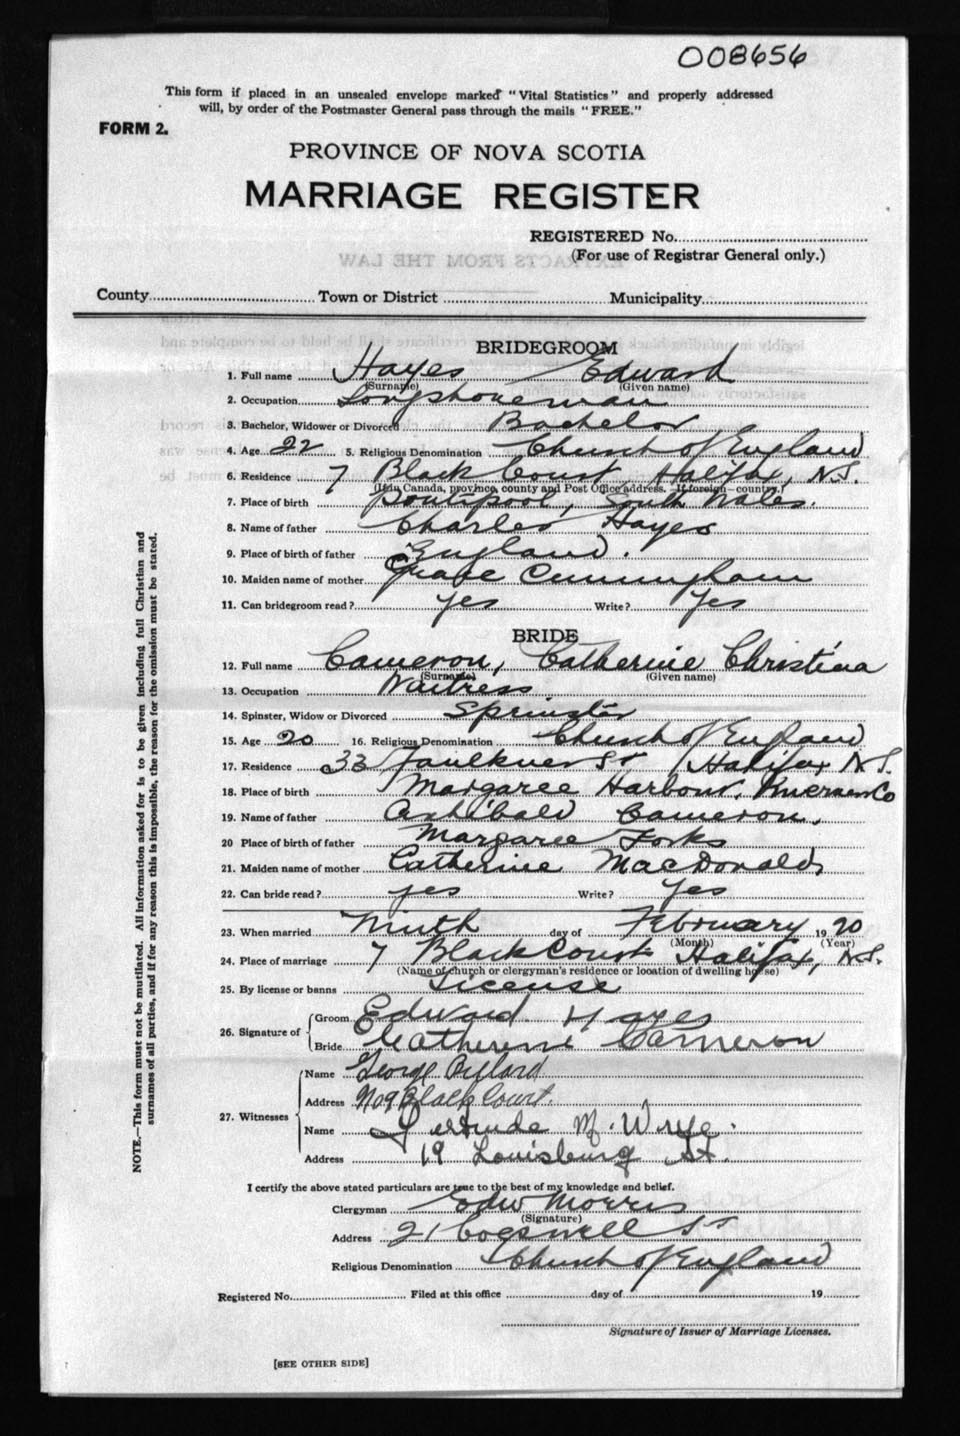 008656
This form if placed in an unsealed envelope marked "Vital Statistics" and properly addressed
will, by order of the Postmaster General pass through the mails "FREE."
FORM 2.
PROVINCE OF NOVA SCOTIA
MARRIAGE REGISTER
REGISTERED No.
(For use of Registrar General only.)
EXTRACTS FROM THE LAW
County Town or District Municipality
BRIDEGROOM
1. Full name Hayes Edward
(Surname) (Given name)
2. Occupation Longshoreman
3. Bachelor, Widower or Divorced Bachelor
4. Age 22 5. Religious Denomination Church of England
6. Residence 7 Black Court Halifax, N.S.
(If in Canada, province, county and Post Office address. If foreign country.)
7. Place of birth Pontipool, South Wales.
8. Name of father Charles Hayes
9. Place of birth of father England.
10. Maiden name of mother Grace Cunningham
11. Can bridegroom read? yes Write? Yes
BRIDE
12. Full name Cameron, Catherine Christina
(Surname) (Given name)
13. Occupation Waitress
14. Spinster, Widow or Divorced Spinster
15. Age 20 16. Religious Denomination Church of England
17. Residence 33 Faulkner St Halifax N.S.
18. Place of birth Margaree Harbour. Inverness Co
19. Name of father Archibald Cameron.
20 Place of birth of father Margaree Forks
21. Maiden name of mother Catherine MacDonald
22. Can bride read? yes Write? Yes
23. When married Ninth day of February 1920
(Month) (Year)
24. Place of marriage 7 Black Court Halifax, N.S.
(Name of church or clergyman's residence or location of dwelling house)
25. By license or banns License
26. Signature of
Groom Edward Hayes
Bride Catherine Cameron
27. Witnesses
Name George
Address No 9 Black Court.
Name Gertrude M.
Address 19 Louisburg St.
I certify the above stated particulars are true to the best of my knowledge and belief.
Clergyman Edw Morris
(Signature)
Address 21 Cogswell St
Religious Denomination Church of England
Registered No. Filed at this office day of 19
Signature of Issuer of Marriage Licenses.
[SEE OTHER SIDE]
NOTE.—This form must not be mutilated. All information asked for is to be given including full Christian and
surnames of all parties, and if for any reason this is impossible, the reason for the omission must be stated.